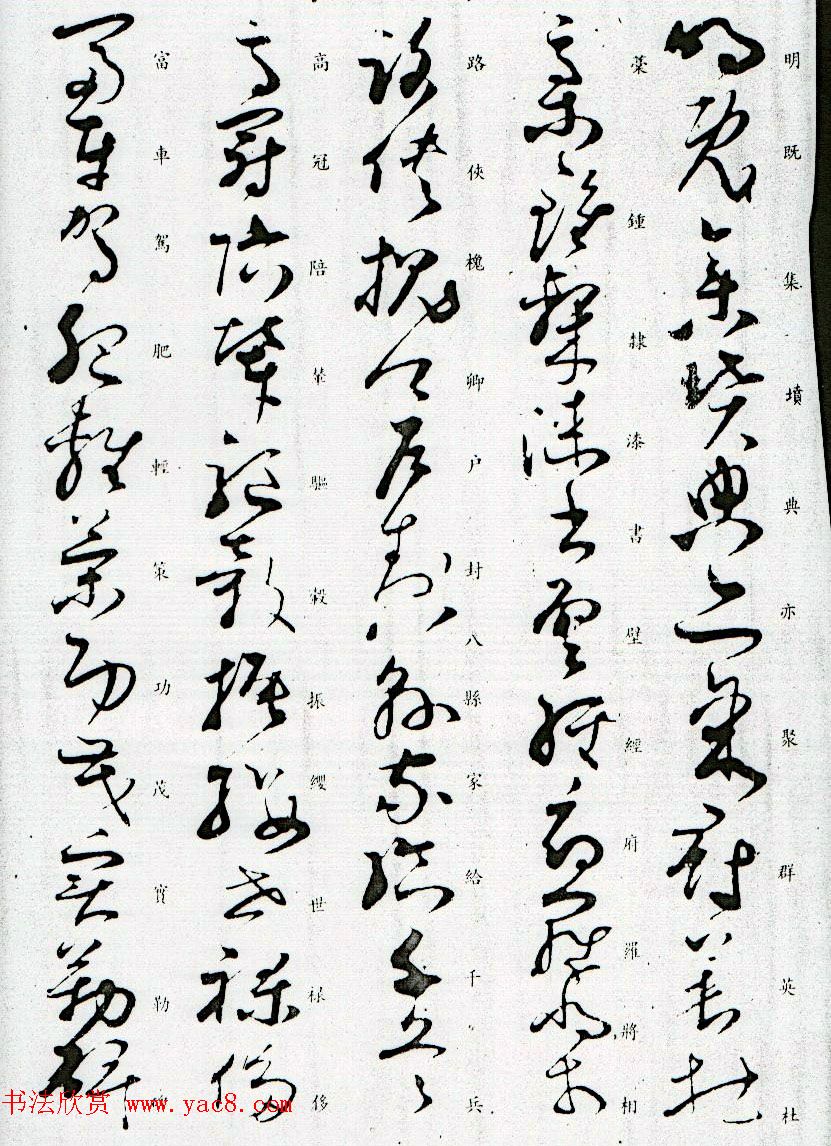 明既集墳典亦聚群英杜
稾鍾隸漆書壁經府羅將相
路俠槐卿户封八縣家給千兵
高冠陪輦驅轂振纓世禄侈
富車駕肥輕策功茂實勒碑
书法欣赏 www.yac8.com